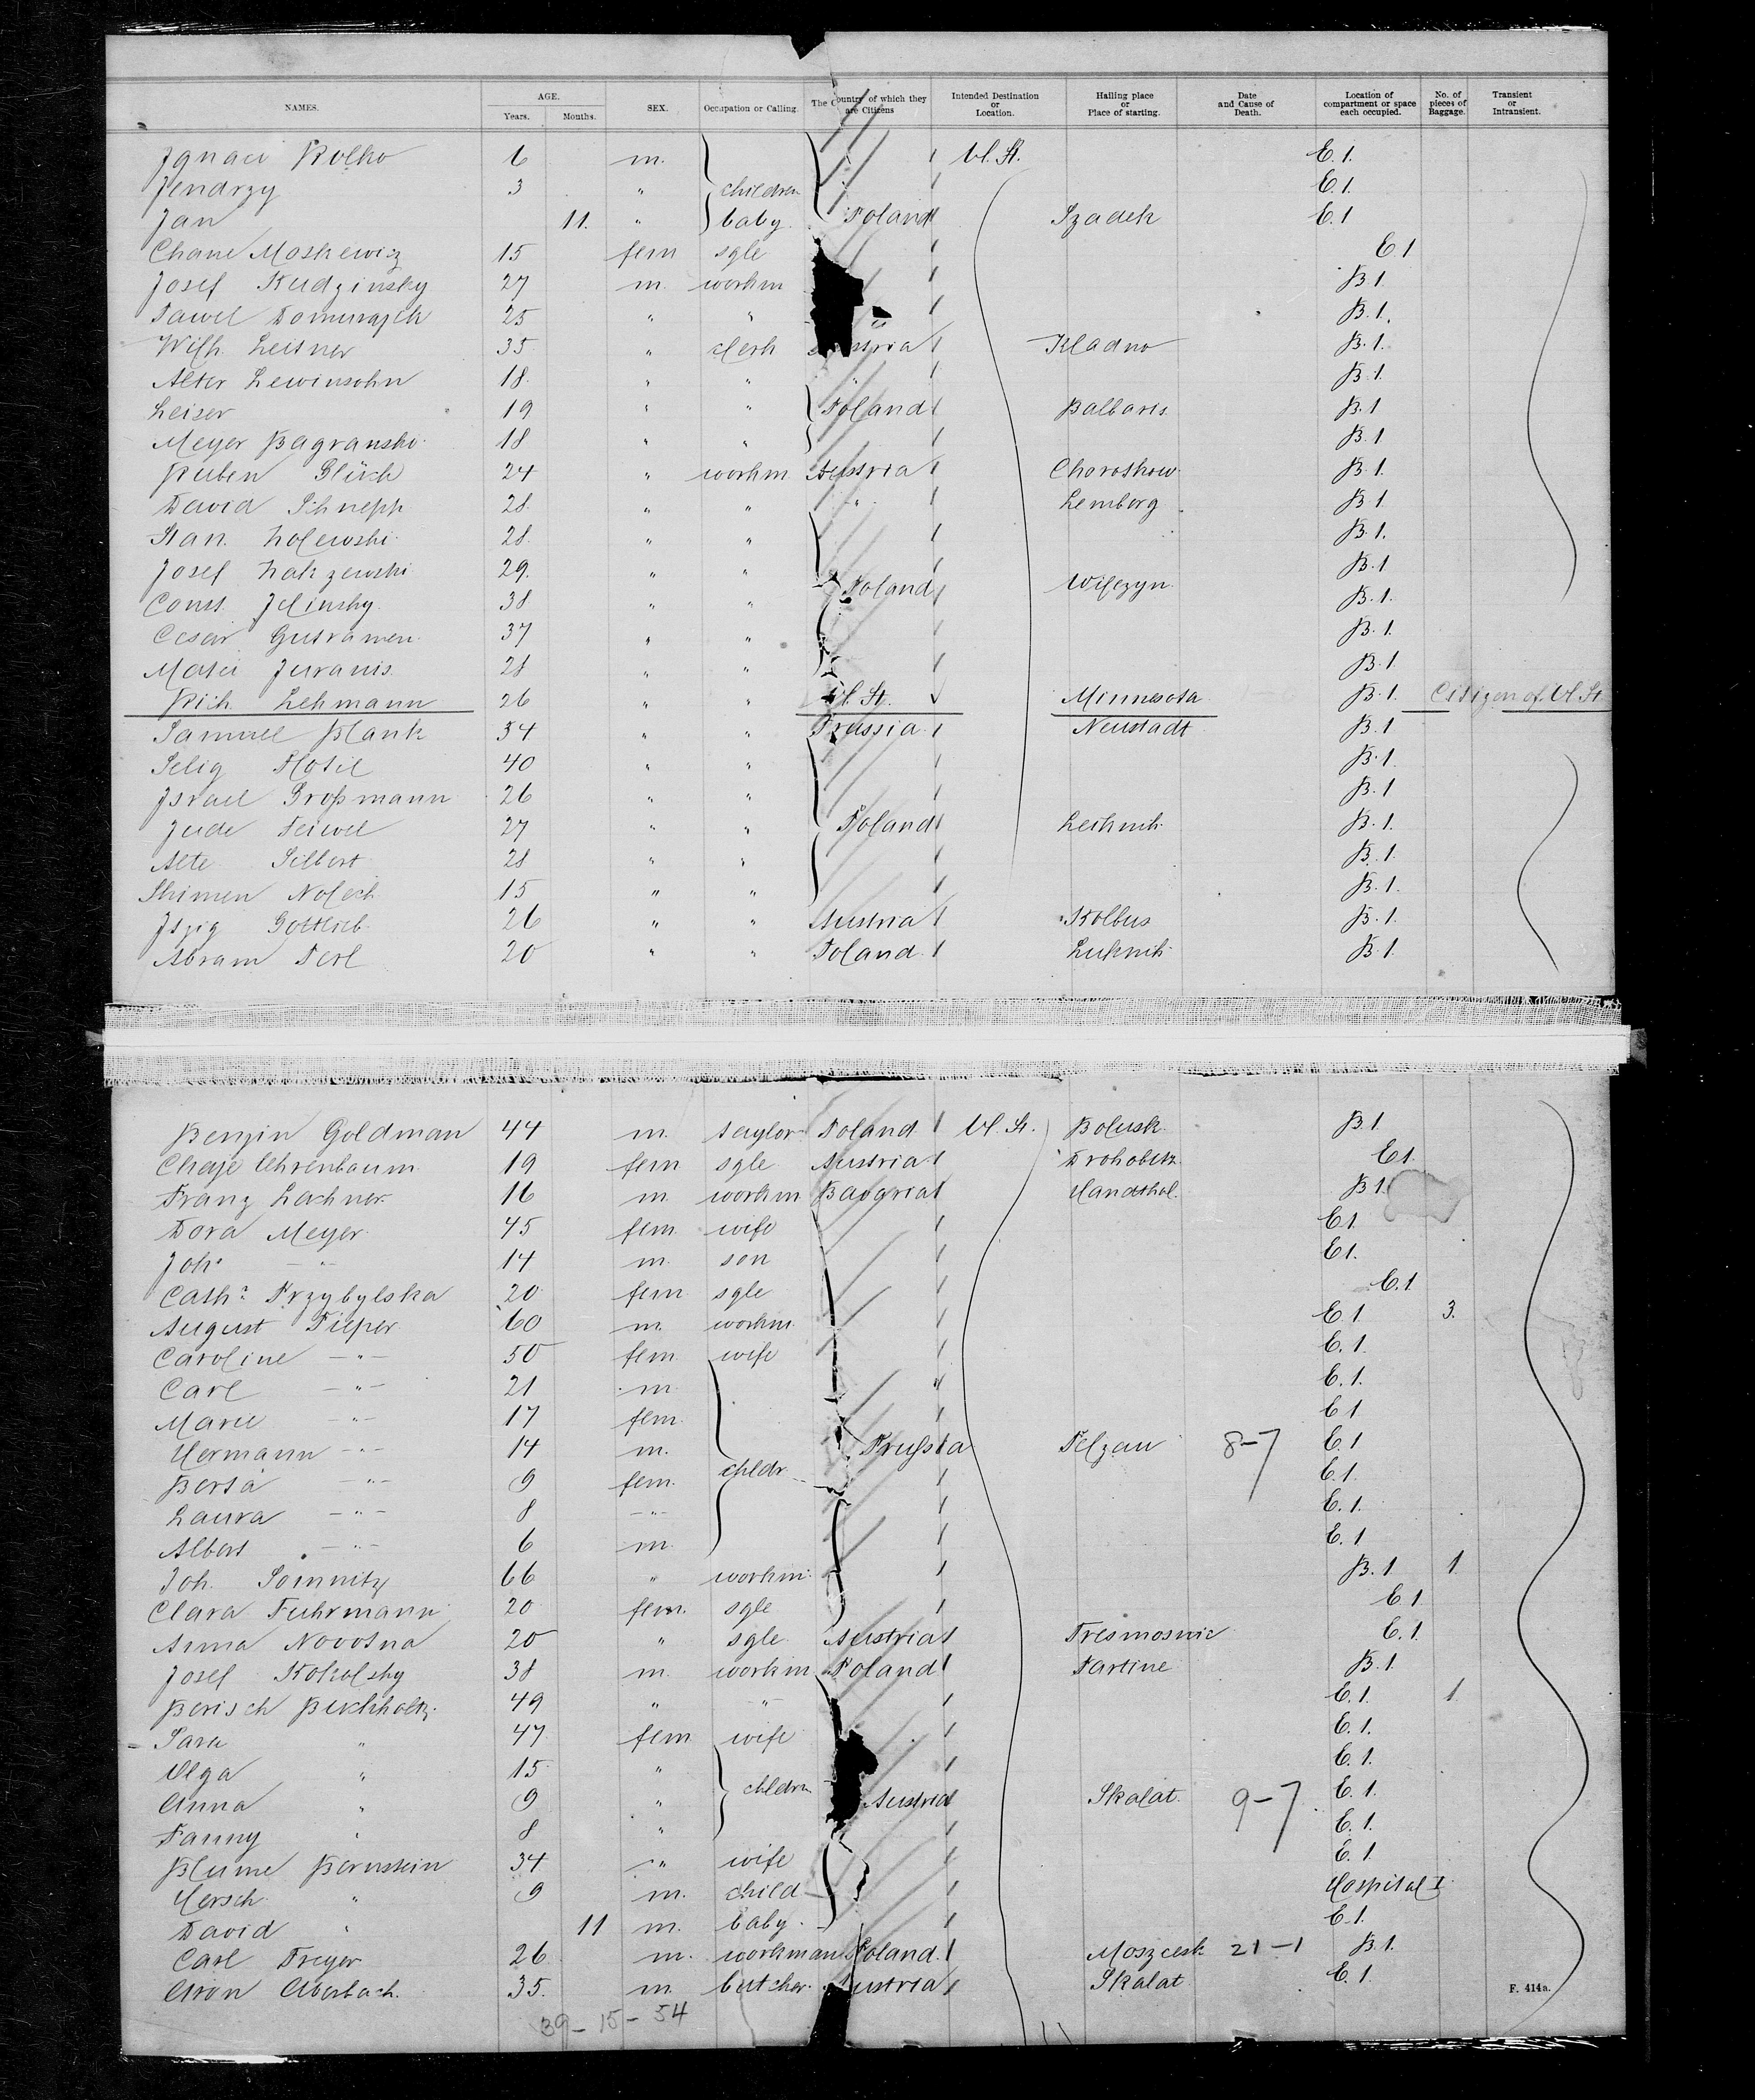 NAMES. AGE. Years. Months. SEX. Occupation or Calling. The Country of which they are Citizens Intended Destination or Location. Hailing place or Place of starting. Date and Cause of Death. Location of compartment or space each occupied. No. of pieces of Baggage. Transient or Intransient.
Ignaci Rolko 6 m. U. St. E. 1.
Jendrzy 3 " children E. 1.
Jan 11. " baby Poland Szadek E. 1
Chane Moskewicz 15 fem sgle E 1
Josef Rudzinsky 27 m. workm B 1
Pawel 25 " " B. 1.
Wilh. Leisner 35 " clerk Kladno B. 1.
Alter Lewinsohn 18. " " " B. 1.
Leiser 19 " " Poland Balbaris B. 1
Meyer Bagransko 18 " " B. 1
Ruben Glück 24 " workm Austria Choroskow B 1.
David Schnepp 28. " " " Lemberg B 1
Stan. Wolewski 28. " " B. 1.
Josef Zakzewski 29. " " B. 1
Const. Jelinsky 38 " " Poland Wilczyn B. 1.
Cesar Gustramen 37 " " B. 1.
Matei Juranis 28 " " B. 1
Rich Lehmann 26 " " U. St. Minnesota B. 1. Citizen of U. St
Samuel Blank 34 " " Prussia Neustadt B. 1
Selig Motil 40 " " B. 1
Israel Großmann 26 " " B. 1
Jude Feiwel 27 " " Poland B. 1.
Alte Silbert 28 " " B. 1.
Shimen 15 " " B. 1.
Iszig Gottlieb 26 " " Austria Kolbus B. 1.
Abram Perl 20 " " Poland B. 1
Benzin Goldman 44 m. taylor Poland U. St. Bolusk B. 1
Chaje Ehrenbaum 19 fem sgle Austria E 1.
Franz Lachner 16 m workm Bavaria B 1
Dora Meyer 45 fem. wife E 1.
Joh. — " — 14 m. son E 1.
Cath. Przybylska 20 fem sgle E. 1
August Pieper 60 m. workm. E 1 3.
Caroline — " — 50 fem wife E. 1.
Carl — " — 21 m. E. 1.
Marie — " — 17 fem. E 1
Hermann — " — 14 m. childr Prußia Pelzau 8-7 E. 1
Berta — " — 9 fem. E. 1.
Laura — " — 8 — " — E. 1.
Albert — " — 6 m. E. 1
Joh. Somnitz 66 " workm. B. 1 1.
Clara Fuhrmann 20 fem. sgle E 1
Anna Novotna 20 " sgle Austria Tresmosnic E. 1.
Josef Kokolsky 38 m. workm Poland Partine B. 1.
Berisch Buchholtz 49 " " E. 1. 1.
Sara " 47 fem wife E. 1.
Olga " 15 " E. 1.
Anna " 9 " childrn Austria Skalat. 9-7 E. 1.
Fanny " 8 " E. 1.
Blume Bernstein 34 " wife E. 1.
Hersch " 9 m. child Hospital I
David " 11 m. baby. E. 1.
Carl Freyer 26 m. workman Poland. 21-1 B. 1.
Aron Aberbach. 35. m. butcher. Austria Skalat E. 1.
39-15-54
F. 414a.